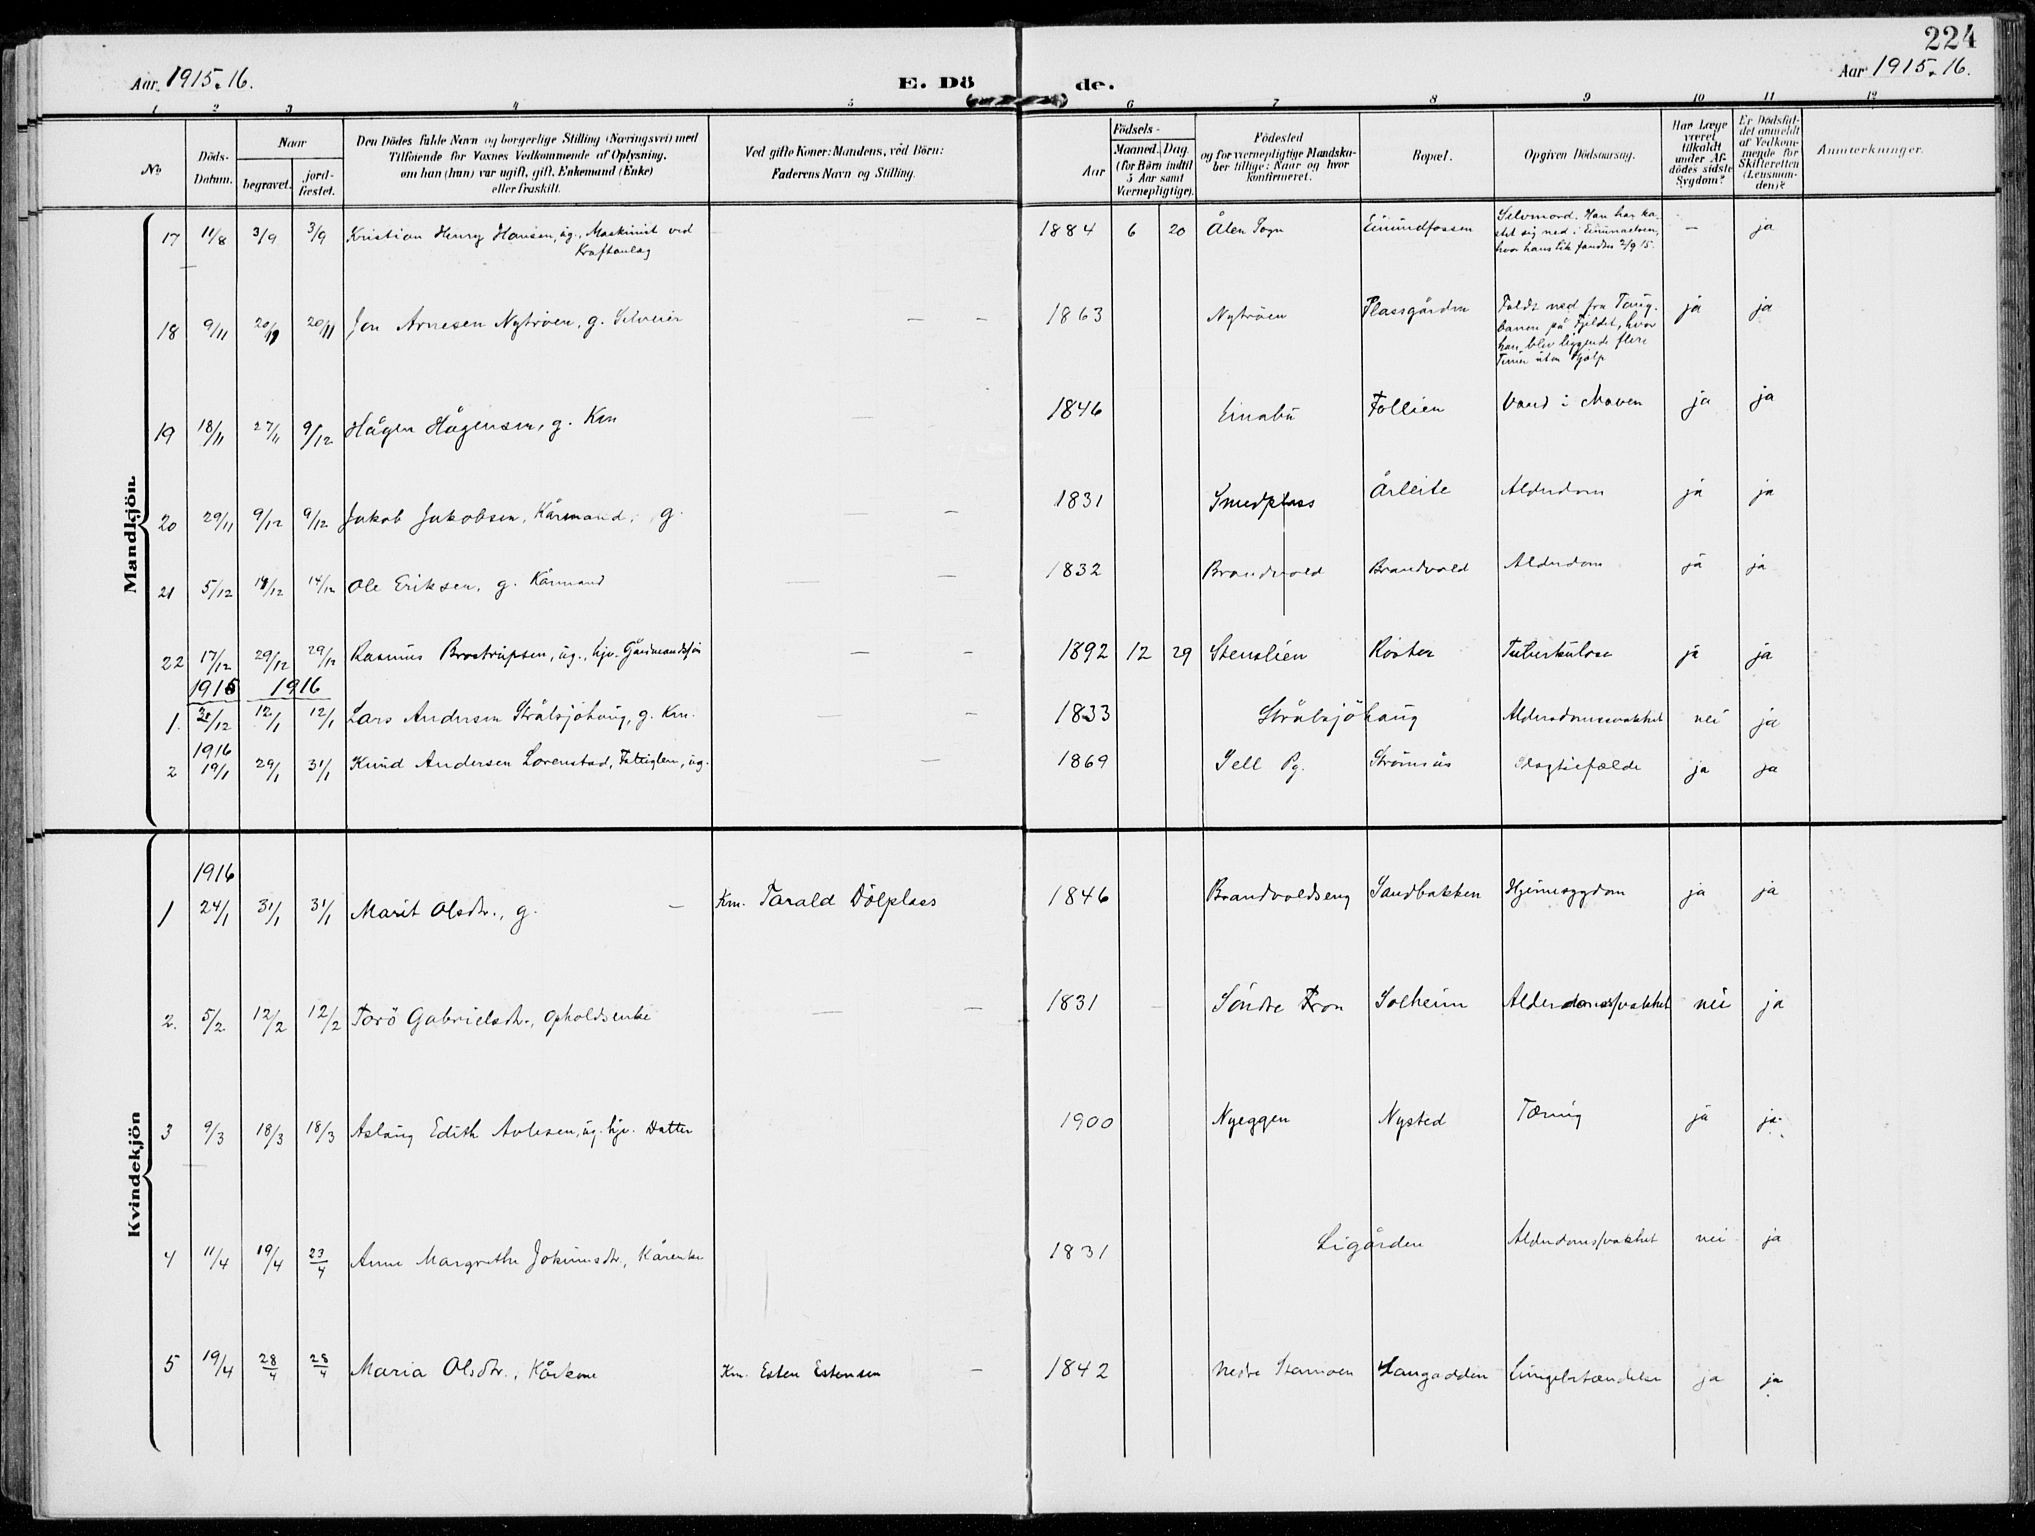 224
Aar 1915.16.
E. Dö de.
Aar 1915.16.
1 2 3 4 5 6 7 8 9 10 11 12
No
Döds-Datum.
Naar
begravet.
jord-fæstet.
Den Dödes fulde Navn og borgerlige Stilling (Næringsvei) med
Tilföiende for Voxnes Vedkommende af Oplysning,
om han (hun) var ugift, gift, Enkemand (Enke)
eller fraskilt.
Ved gifte Koner: Mandens, ved Börn:
Faderens Navn og Stilling.
Födsels-
Aar
Maaned. Dag
(for Börn indtil
5 Aar samt
Værnepligtige).
Födested
og for værnepligtige Mandska-
ber tillige: Naar og hvor
konfirmeret.
Bopæl.
Opgiven Dödsaarsag.
Har Læge
været
tilkaldt
under Af-
dödes sidste
Sygdom?
Er Dödsfal-
det anmeldt
af Vedkom-
mende for
Skifteretten
(Lensman-
den)?
Anmærkninger.
Mandkjön.
17 11/8 3/9 3/9 Kristian Henry Hansen, ug., Maskinist ved
Kraftanlæg
1884 6 20 Ålen Sogn Einundfossen
Selvmord. Han har ka-
stet sig ned i Einunaelven,
hvor hans lik fandtes 2/9 15.
— ja
18 9/11 20/11 20/11 Jon Arnesen Nytrøen, g. Selveier — — 1863 Nytrøen Plassgården
Faldt ned fra Taug-
banen på Fjeldet, hvor
han blev liggende flere
Timer uten Hjælp
ja ja
19 18/11 27/11 9/12 Hågen Hågensen, g. Km — — 1846 Einabu Follien Vand i Maven ja ja
20 29/11 9/12 9/12 Jakob Jakobsen, Kårmand, g. — — 1831 Smedplass Årleite Alderdom ja ja
21 5/12 14/12 14/12 Ole Eriksen, g. Kårmand — — 1832 Brandvold Brandvold Alderdom ja ja
22 17/12 29/12 29/12 Rasmus Brostrupsen, ug., hjv. Gårdmandssøn — — 1892 12 29 Stenslien Røsten Tuberkulose ja ja
1915 1916
1. 31/12 12/1 12/1 Lars Andersen Strålsjøhaug, g. Km. — — 1833 Strålsjøhaug Alderdomssvakhet nei ja
1916
2 19/1 29/1 31/1 Knud Andersen Lorenstad, Fattiglem, ug. — 1869 Sell Pg. Strømsås Slagtilfælde ja ja
Kvindekjön
1916
1 24/1 31/1 31/1 Marit Olsdtr., g. — Km. Tarald Dölplass 1846 Brandvoldseng Sandbakken Hjernesygdom ja ja
2. 5/2 12/2 12/2 Torö Gabrielsdtr., Opholdsenke — — 1831 Söndre Fron Solheim Alderdomssvakhet nei ja
3 9/3 18/3 18/3 Aslaug Edith Avlesen, ug. hjv. Datter 1900 Nyeggen Nysted Tæring ja ja
4 11/4 19/4 23/4 Anne Margrethe Jokumsdtr, Kårenke 1831 Ligården Alderdomssvakhet nei ja
5 19/4 28/4 28/4 Maria Olsdtr., Kårkone Km. Esten Estensen — 1842 Nedre Stamoen Langodden Lungebetændelse ja ja